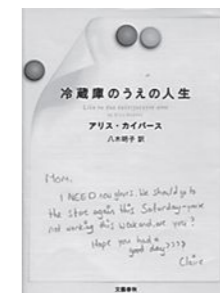 冷蔵庫のうえの人生
Life on the Refrigerator Door
アリス・カイパース
八木明子 訳
Mom,
I NEED new jeans. We should go to
the store again this Saturday-you're
not working this weekend, are you?
Hope you had a
good day????
Claire
文藝春秋